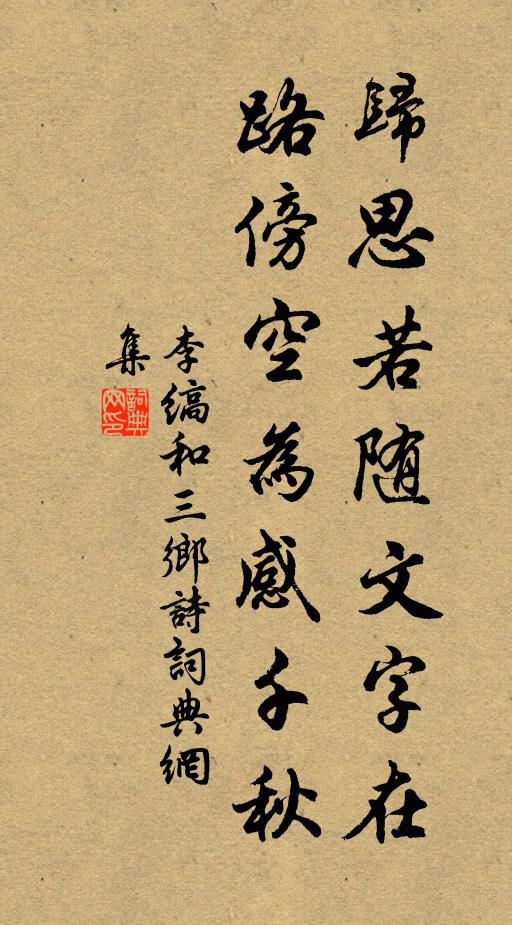 歸思若随文字在
路傍空為感千秋
李縞和三鄉詩詞典網
集
詞典
网印